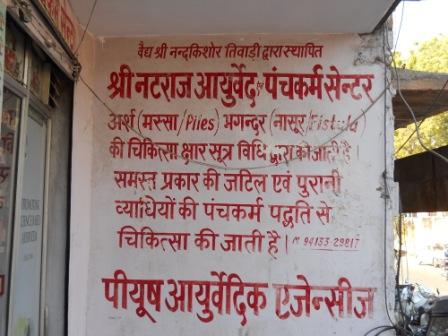 वैद्य श्री नन्दकिशोर तिवाड़ी द्वारा स्थापित
श्री नटराज आयुर्वेद पंचकर्म सेन्टर
अर्श (मस्सा/Piles) भगन्दर (नासूर/Fistula
की चिकित्सा क्षार सूत्र विधि द्वारा की जाती है।
समस्त प्रकार की जटिल एवं पुरानी
व्याधियों की पंचकर्म पद्धति से
चिकित्सा की जाती है। M 94133-29817
पीयूष आयुर्वेदिक एजेन्सीज